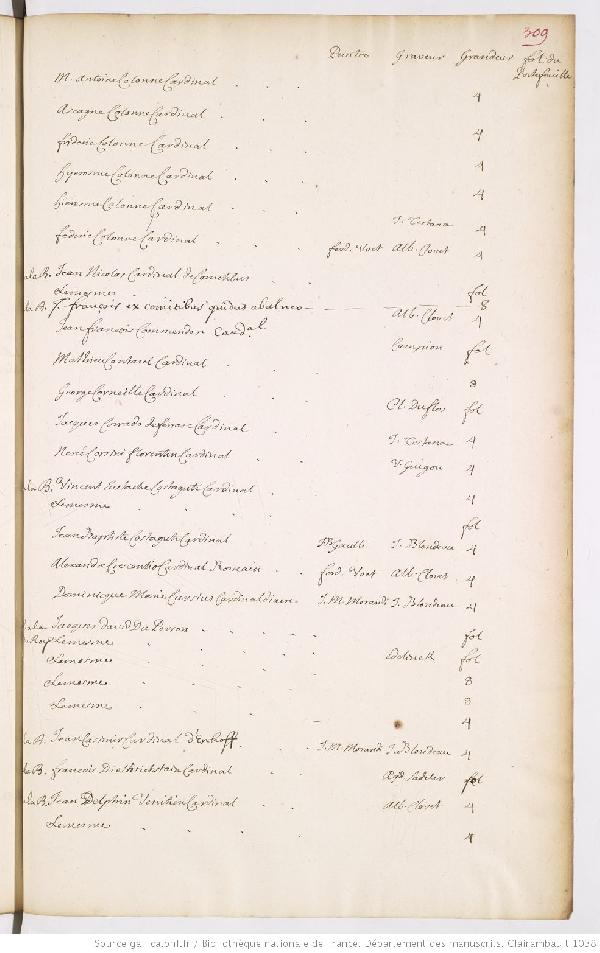 309
Peintre Graveur Grandeur fol. du Portefeuille
M. Antoine Colonne Cardinal . . . 4
Ascagne Colonne Cardinal . . . 4
frideric Colonne Cardinal . . . 4
hyerosme Colonne Cardinal . . . 4
hierosme Colonne Cardinal . . . J. Testana 4
federic Colonne Cardinal . . . ferd. Voet Alb. Clouet 4
de la B. Jean Nicolas Cardinal de . . . fol
Lemesme . . . 8
de la B. f. françois ex comitibus guidus a balneo Alb. Clouet 4
Jean françois Commendon Cardal. Campion fol
Mathieu Contarel Cardinal . . . 8
George Corneille Cardinal . . . Cl. Duflos fol
Jacques Corrado de ferrare Cardinal J. Testana 4
Neré Corsini florentin Cardinal V. Guigou 4
de la B. Vincent Eustache Costaguti Cardinal . . 4
Lemesme . . . fol
Jean Baptiste Costaguti Cardinal JB Gaulli J. Blondeau 4
Alexandre Crescentio Cardinal Romain . ferd. Voet Alb. Clouet 4
Dominique Marie Cursius Cardinal diacre J. M. Morandi J. Blondeau 4
Jacques david Du Perron . . . fol
du Roy Lemesme . . . Edelinck fol
Lemesme . . . 8
Lemesme . . . 8
Lemesme . . . 4
de la B. Jean Casimir Cardinal d'Enhoff . J. M. Morandi J. Blondeau 4
de la B. françois Diethrichstain Cardinal . . Egid. Sadeler fol
de la B. Jean Delphin Venitien Cardinal . . Alb. Clouet 4
Lemesme . . . 4
Source gallica.bnf.fr / Bibliothèque nationale de France. Département des manuscrits. Clairambault 1038